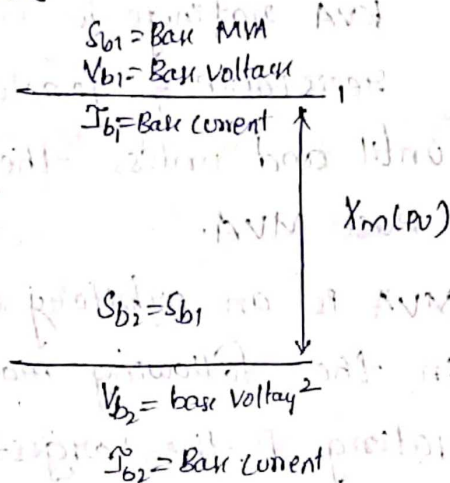 Sb1 = Base MVA
Vb1 = Base voltage
1
Ib1 = Base current
Xm(PU)
Sb2 = Sb1
Vb2 = base voltage 2
Ib2 = Base current